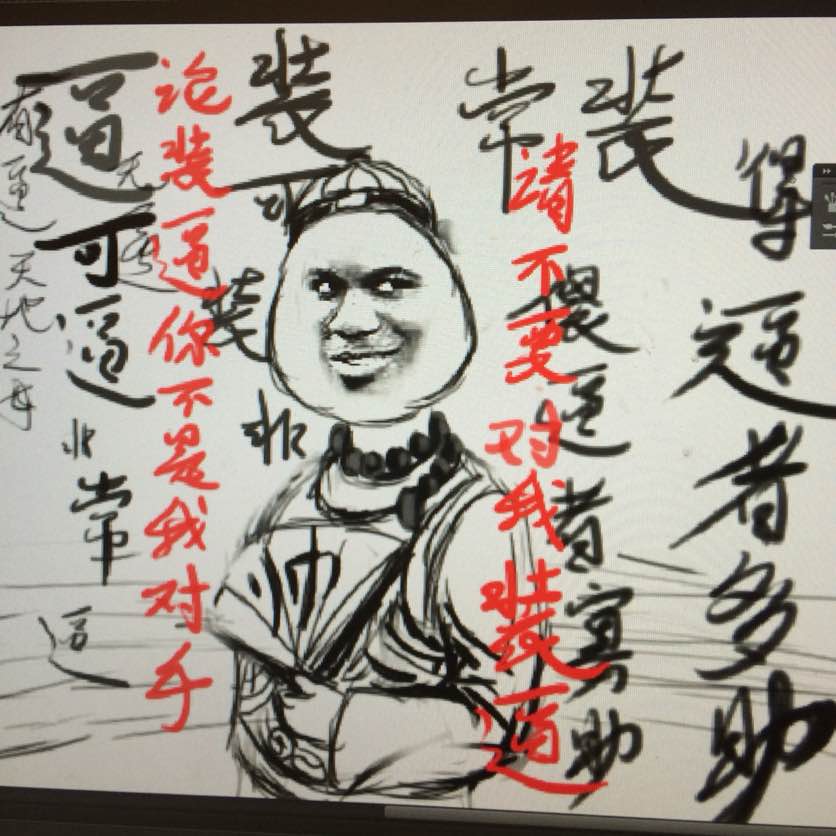 得逼者多助
逼者寡助
常装
请不要对我装逼
装可装非
帅
论装逼你不是我对手
逼可逼非常逼
有逼天地之母